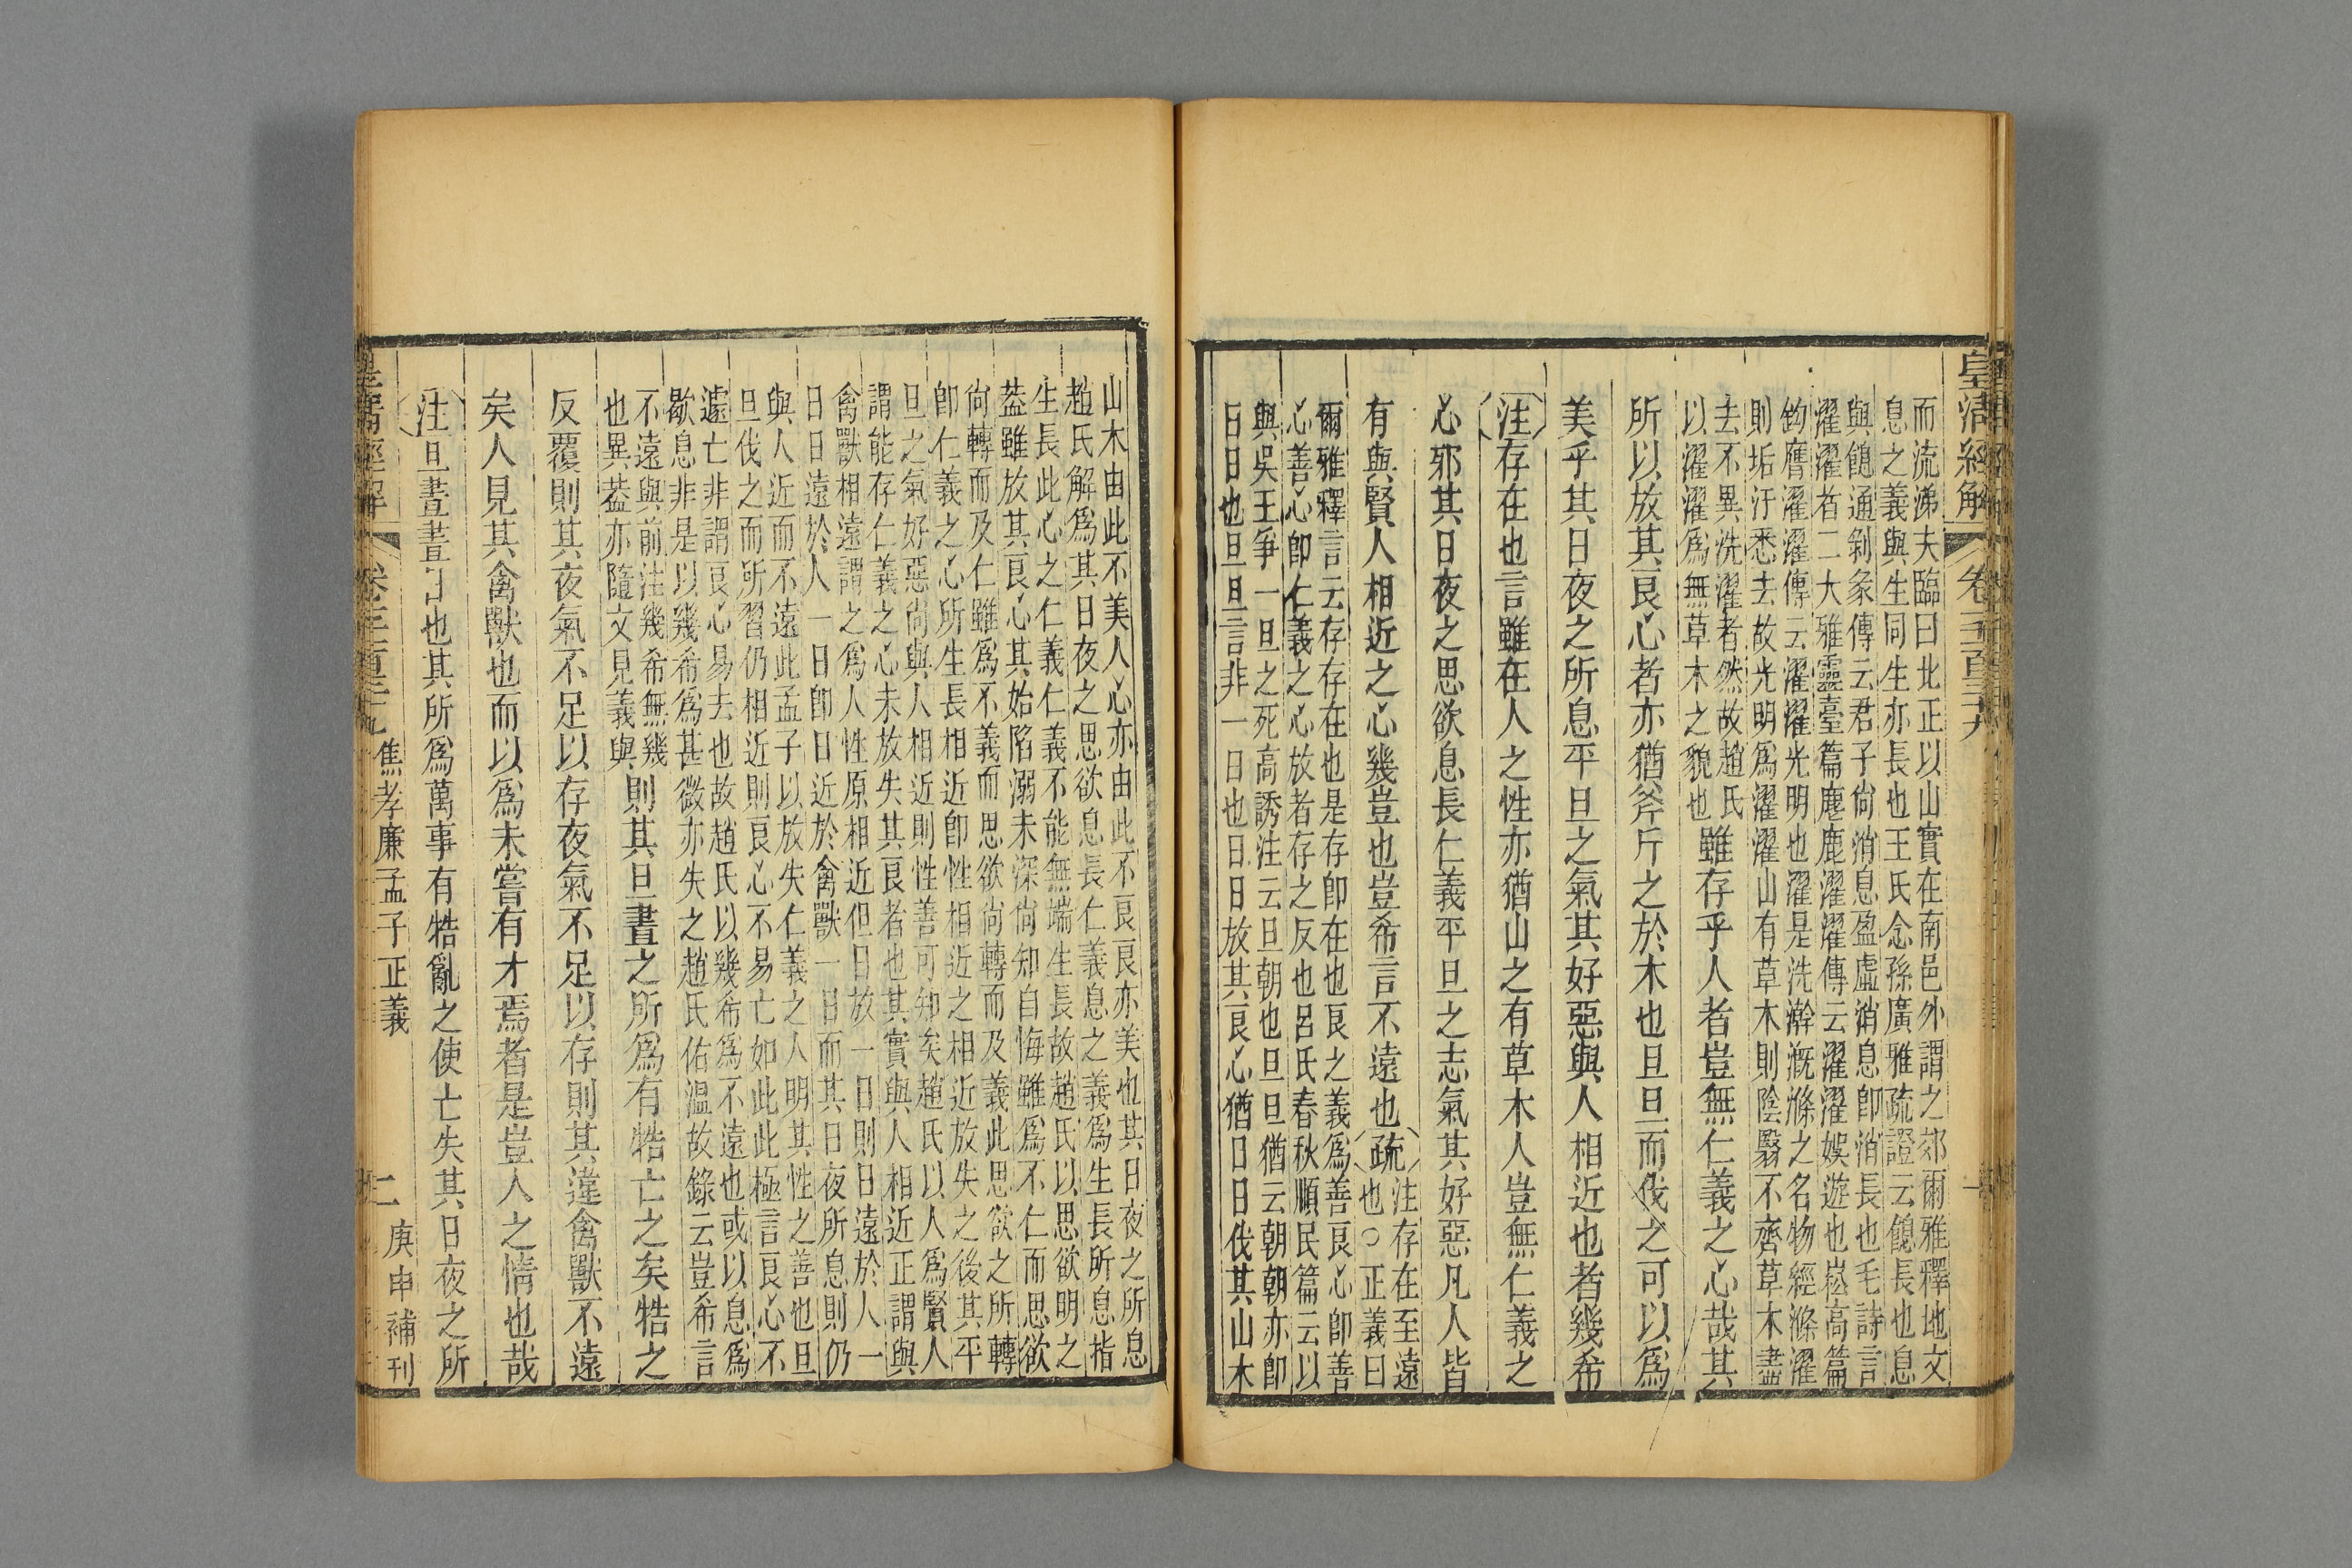 皇清經解
卷一千一百三十九
而流涕夫臨曰北正以山實在南邑外謂之郊爾雅釋地文
息之義與生同生亦長也王氏念孫廣雅疏證云餽長也息
與餽通剝彖傳云君子尙消息盈虛消息卽消長也毛詩言
濯濯者二大雅靈臺篇麀鹿濯濯傳云濯濯娛遊也崧高篇
鉤膺濯濯傳云濯濯光明也濯是洗澣溉滌之名物經滌濯
則垢汙悉去故光明爲濯濯山有草木則陰翳不齊草木盡
去不異洗濯者然故趙氏
以濯濯爲無草木之貌也
雖存乎人者豈無仁義之心哉其
所以放其良心者亦猶斧斤之於木也旦旦而伐之可以爲
美乎其日夜之所息平旦之氣其好惡與人相近也者幾希
注存在也言雖在人之性亦猶山之有草木人豈無仁義之
心邪其日夜之思欲息長仁義平旦之志氣其好惡凡人皆
有與賢人相近之心幾豈也豈希言不遠也疏
注存在至遠
也○正義曰
爾雅釋言云存存在也是存卽在也良之義爲善良心卽善
心善心卽仁義之心放者存之反也呂氏春秋順民篇云以
與吳王爭一旦之死高誘注云旦朝也旦旦猶云朝朝亦卽
日日也旦旦言非一日也日日放其良心猶日日伐其山木
山木由此不美人心亦由此不良良亦美也其日夜之所息
趙氏解爲其日夜之思欲息長仁義息之義爲生長所息指
生長此心之仁義仁義不能無端生長故趙氏以思欲明之
蓋雖放其良心其始陷溺未深尙知自悔雖爲不仁而思欲
尙轉而及仁雖爲不義而思欲尙轉而及義此思欲之所轉
卽仁義之心所生長相近卽性相近之相近放失之後其平
旦之氣好惡尙與人相近則性善可知矣趙氏以人爲賢人
謂能存仁義之心未放失其良者也其實與人相近正謂與
禽獸相遠謂之爲人性原相近但日放一日則日遠於人一
日日遠於人一日卽日近於禽獸一日而其日夜所息則仍
與人近而不遠此孟子以放失仁義之人明其性之善也旦
旦伐之而所習仍相近則良心不易亡如此此極言良心不
遽亡非謂良心易去也故趙氏以幾希爲不遠也或以息爲
歇息非是以幾希爲甚微亦失之趙氏佑温故錄云豈希言
不遠與前注幾希無幾
也異蓋亦隨文見義與
則其旦晝之所爲有牿亡之矣牿之
反覆則其夜氣不足以存夜氣不足以存則其違禽獸不遠
矣人見其禽獸也而以爲未嘗有才焉者是豈人之情也哉
注旦晝晝日也其所爲萬事有牿亂之使亡失其日夜之所
焦孝廉孟子正義
二
庚申補刊